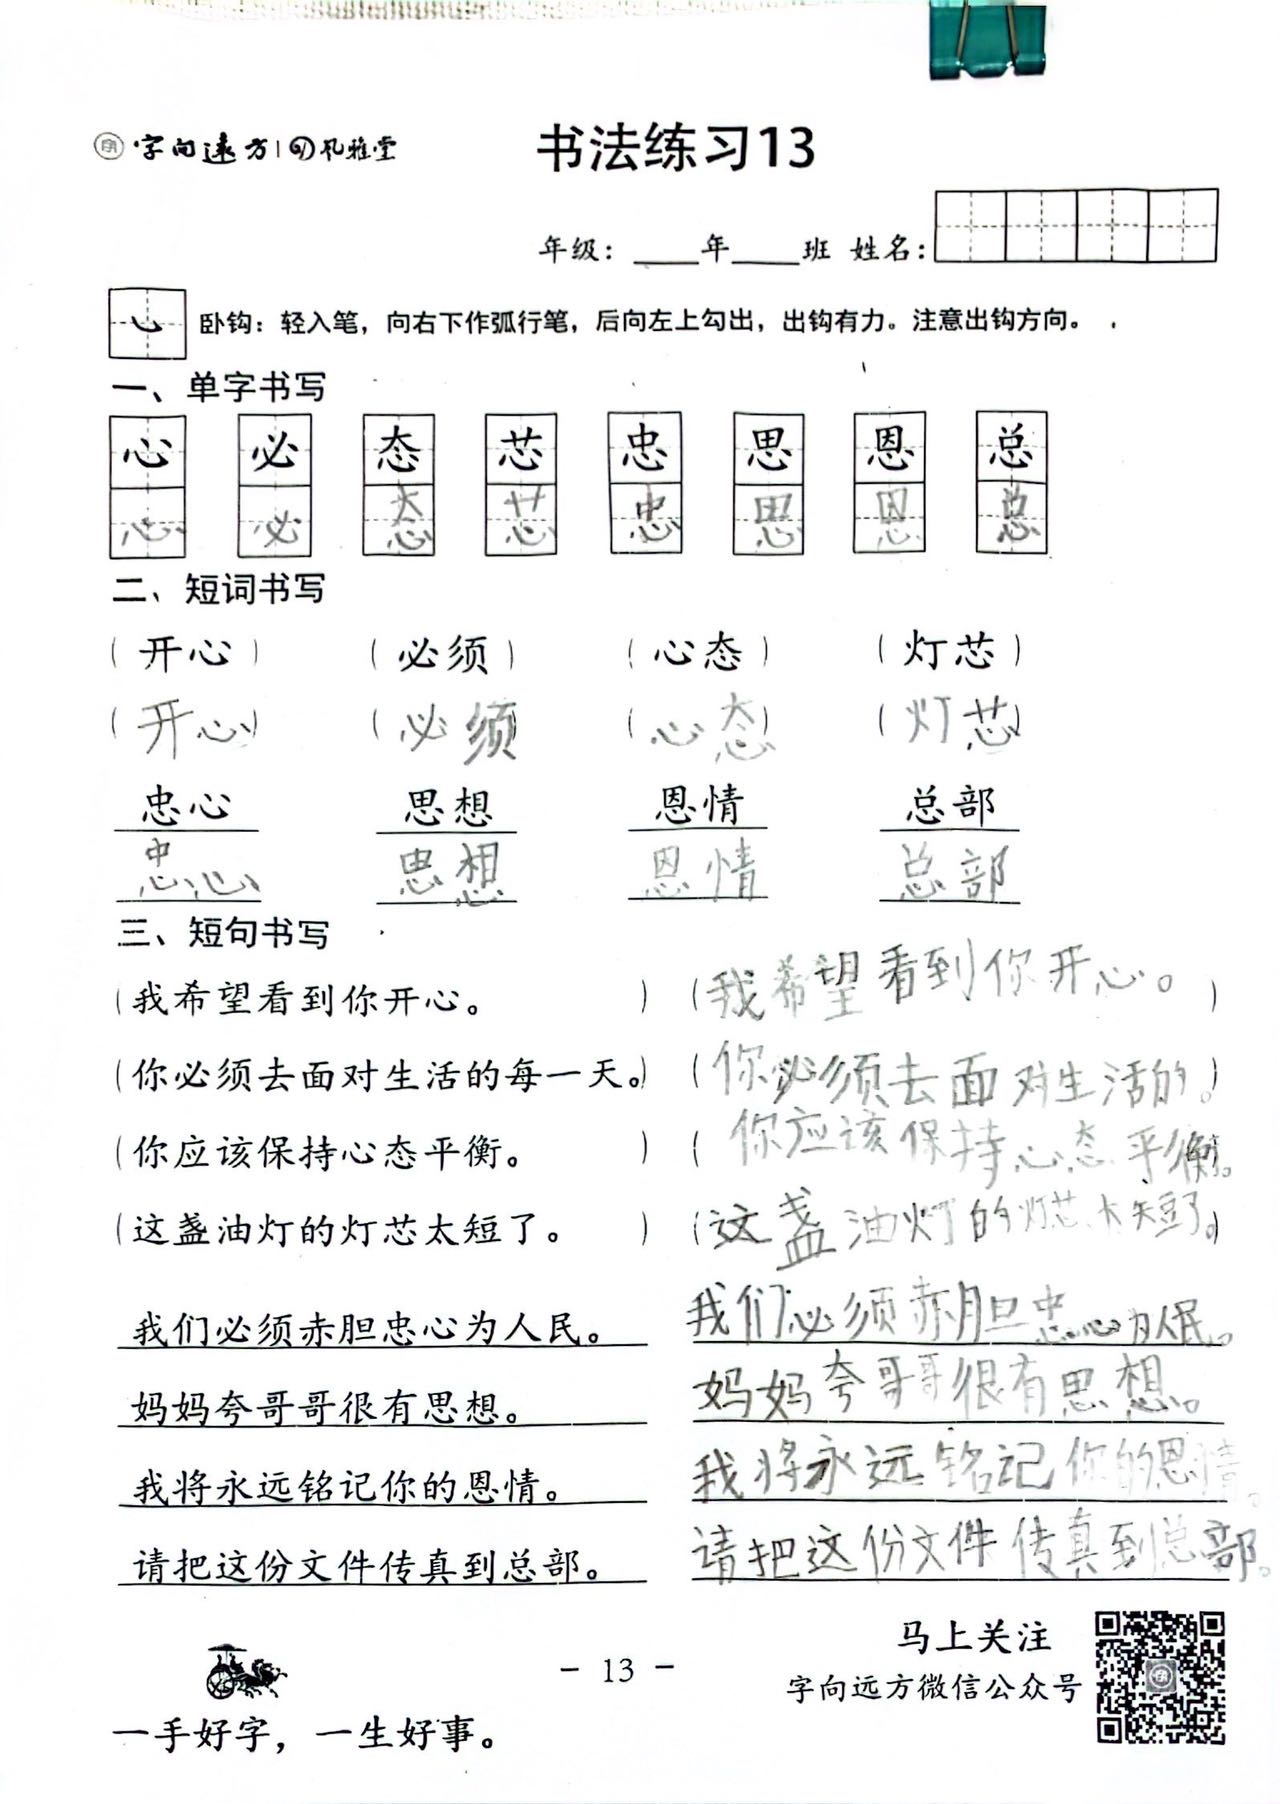 字向远方 孔雅堂
书法练习13
年级：____年____班 姓名：
卧钩：轻入笔，向右下作弧行笔，后向左上勾出，出钩有力。注意出钩方向。
一、单字书写
心 必 态 芯 忠 思 恩 总
心 必 态 芯 忠 思 恩 总
二、短词书写
（开心） （必须） （心态） （灯芯）
（开心） （必须） （心态） （灯芯）
忠心 思想 恩情 总部
忠心 思想 恩情 总部
三、短句书写
（我希望看到你开心。） （我希望看到你开心。）
（你必须去面对生活的每一天。） （你必须去面对生活的。）
（你应该保持心态平衡。） （你应该保持心态平衡。
（这盏油灯的灯芯太短了。） （这盏油灯的灯芯太短了。）
我们必须赤胆忠心为人民。 我们必须赤胆忠心为人民。
妈妈夸哥哥很有思想。 妈妈夸哥哥很有思想。
我将永远铭记你的恩情。 我将永远铭记你的恩情。
请把这份文件传真到总部。 请把这份文件传真到总部。
马上关注
- 13 -
字向远方微信公众号
一手好字，一生好事。